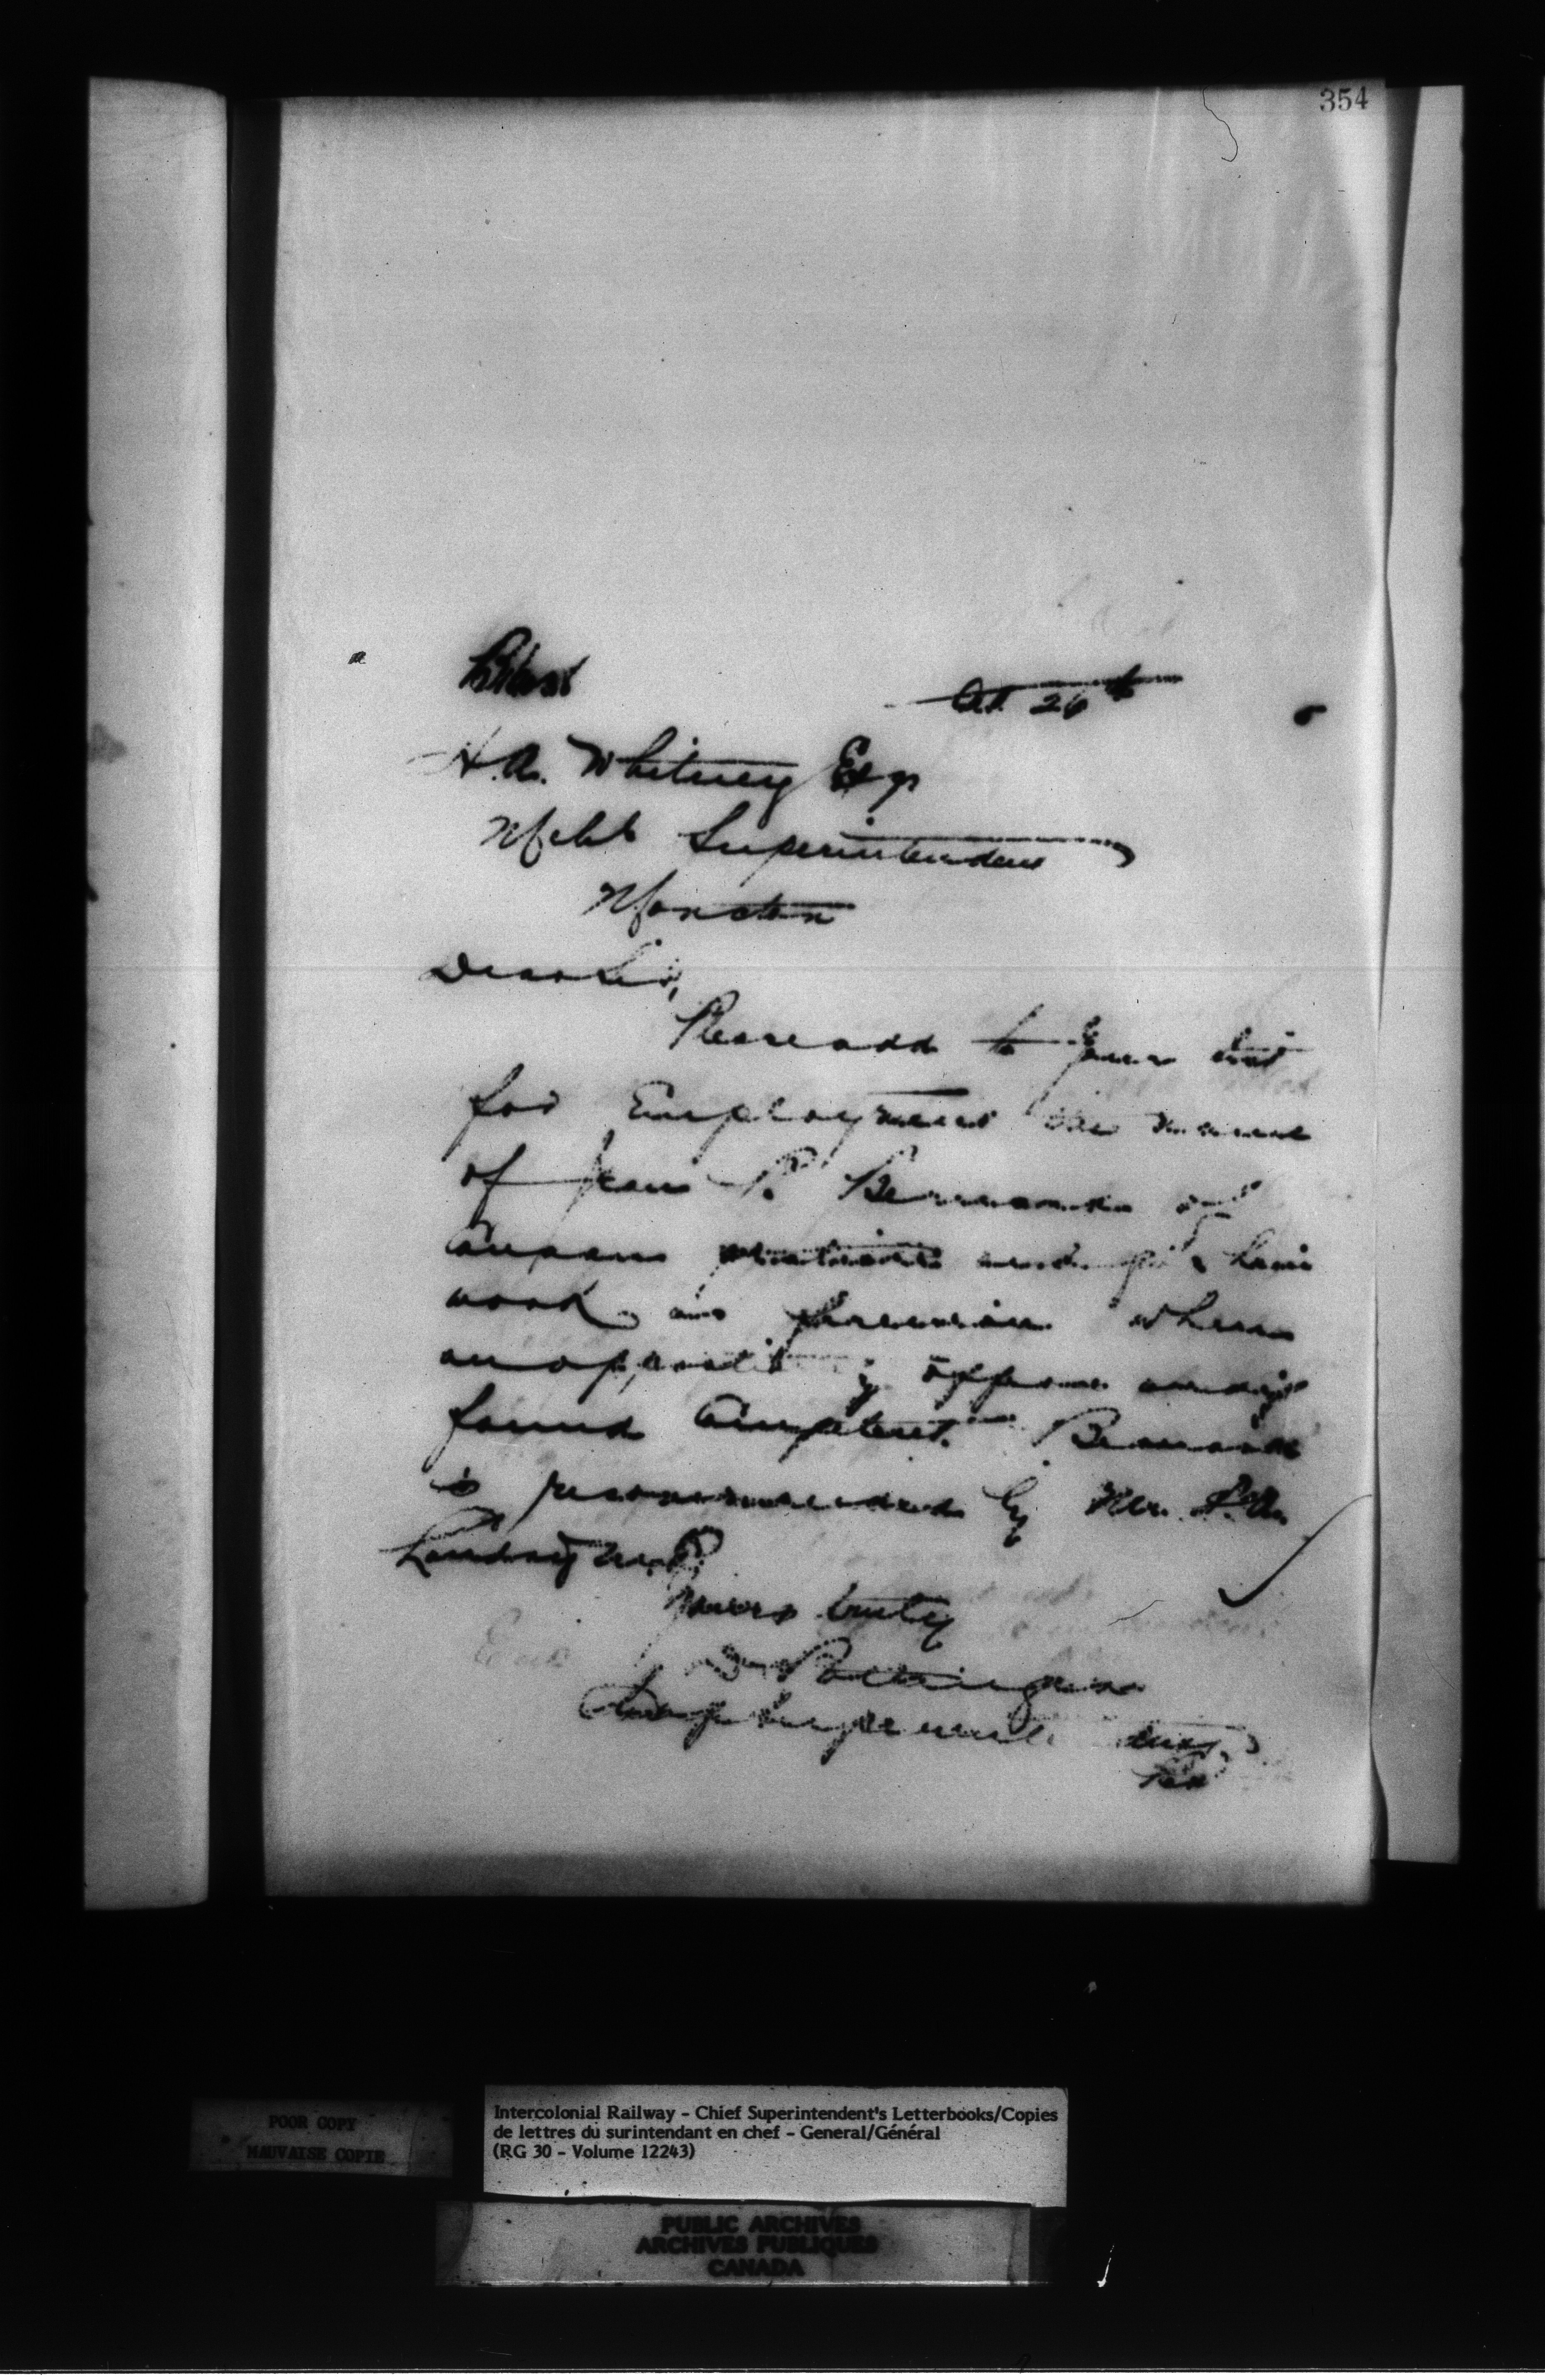 354
Oct 26th
H.A. Whitney Esq
Mchl Superintendent
Moncton
Dear Sir,
Please add to your list
for Employment the name
of Jean P.
and give him
work as when
an opportunity offers and if
found Competent.
is recommended by Mr. P.A.
Lindsay
Yours truly
D Pottinger
Chief Superintendent
POOR COPY
MAUVAISE COPIE
Intercolonial Railway - Chief Superintendent's Letterbooks/Copies
de lettres du surintendant en chef - General/Général
(RG 30 - Volume 12243)
PUBLIC ARCHIVES
ARCHIVES PUBLIQUES
CANADA